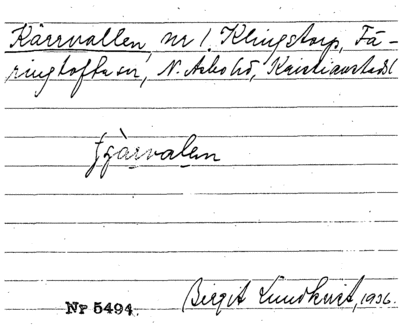 Kärrvallen, nr 1, Klingstorp, Fä-
ringtofta sn, N. Asbo hd, Kristianstad l
Nr 5494.
Birgit Lundkvist, 1936.